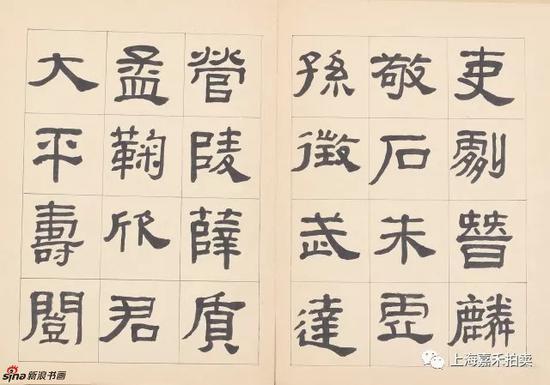 吏劇晉麟
敬石朱虛
孫徵武達
營陵薛質
孟鞠欣君
大平壽闓
sina新浪书画
上海嘉禾拍卖